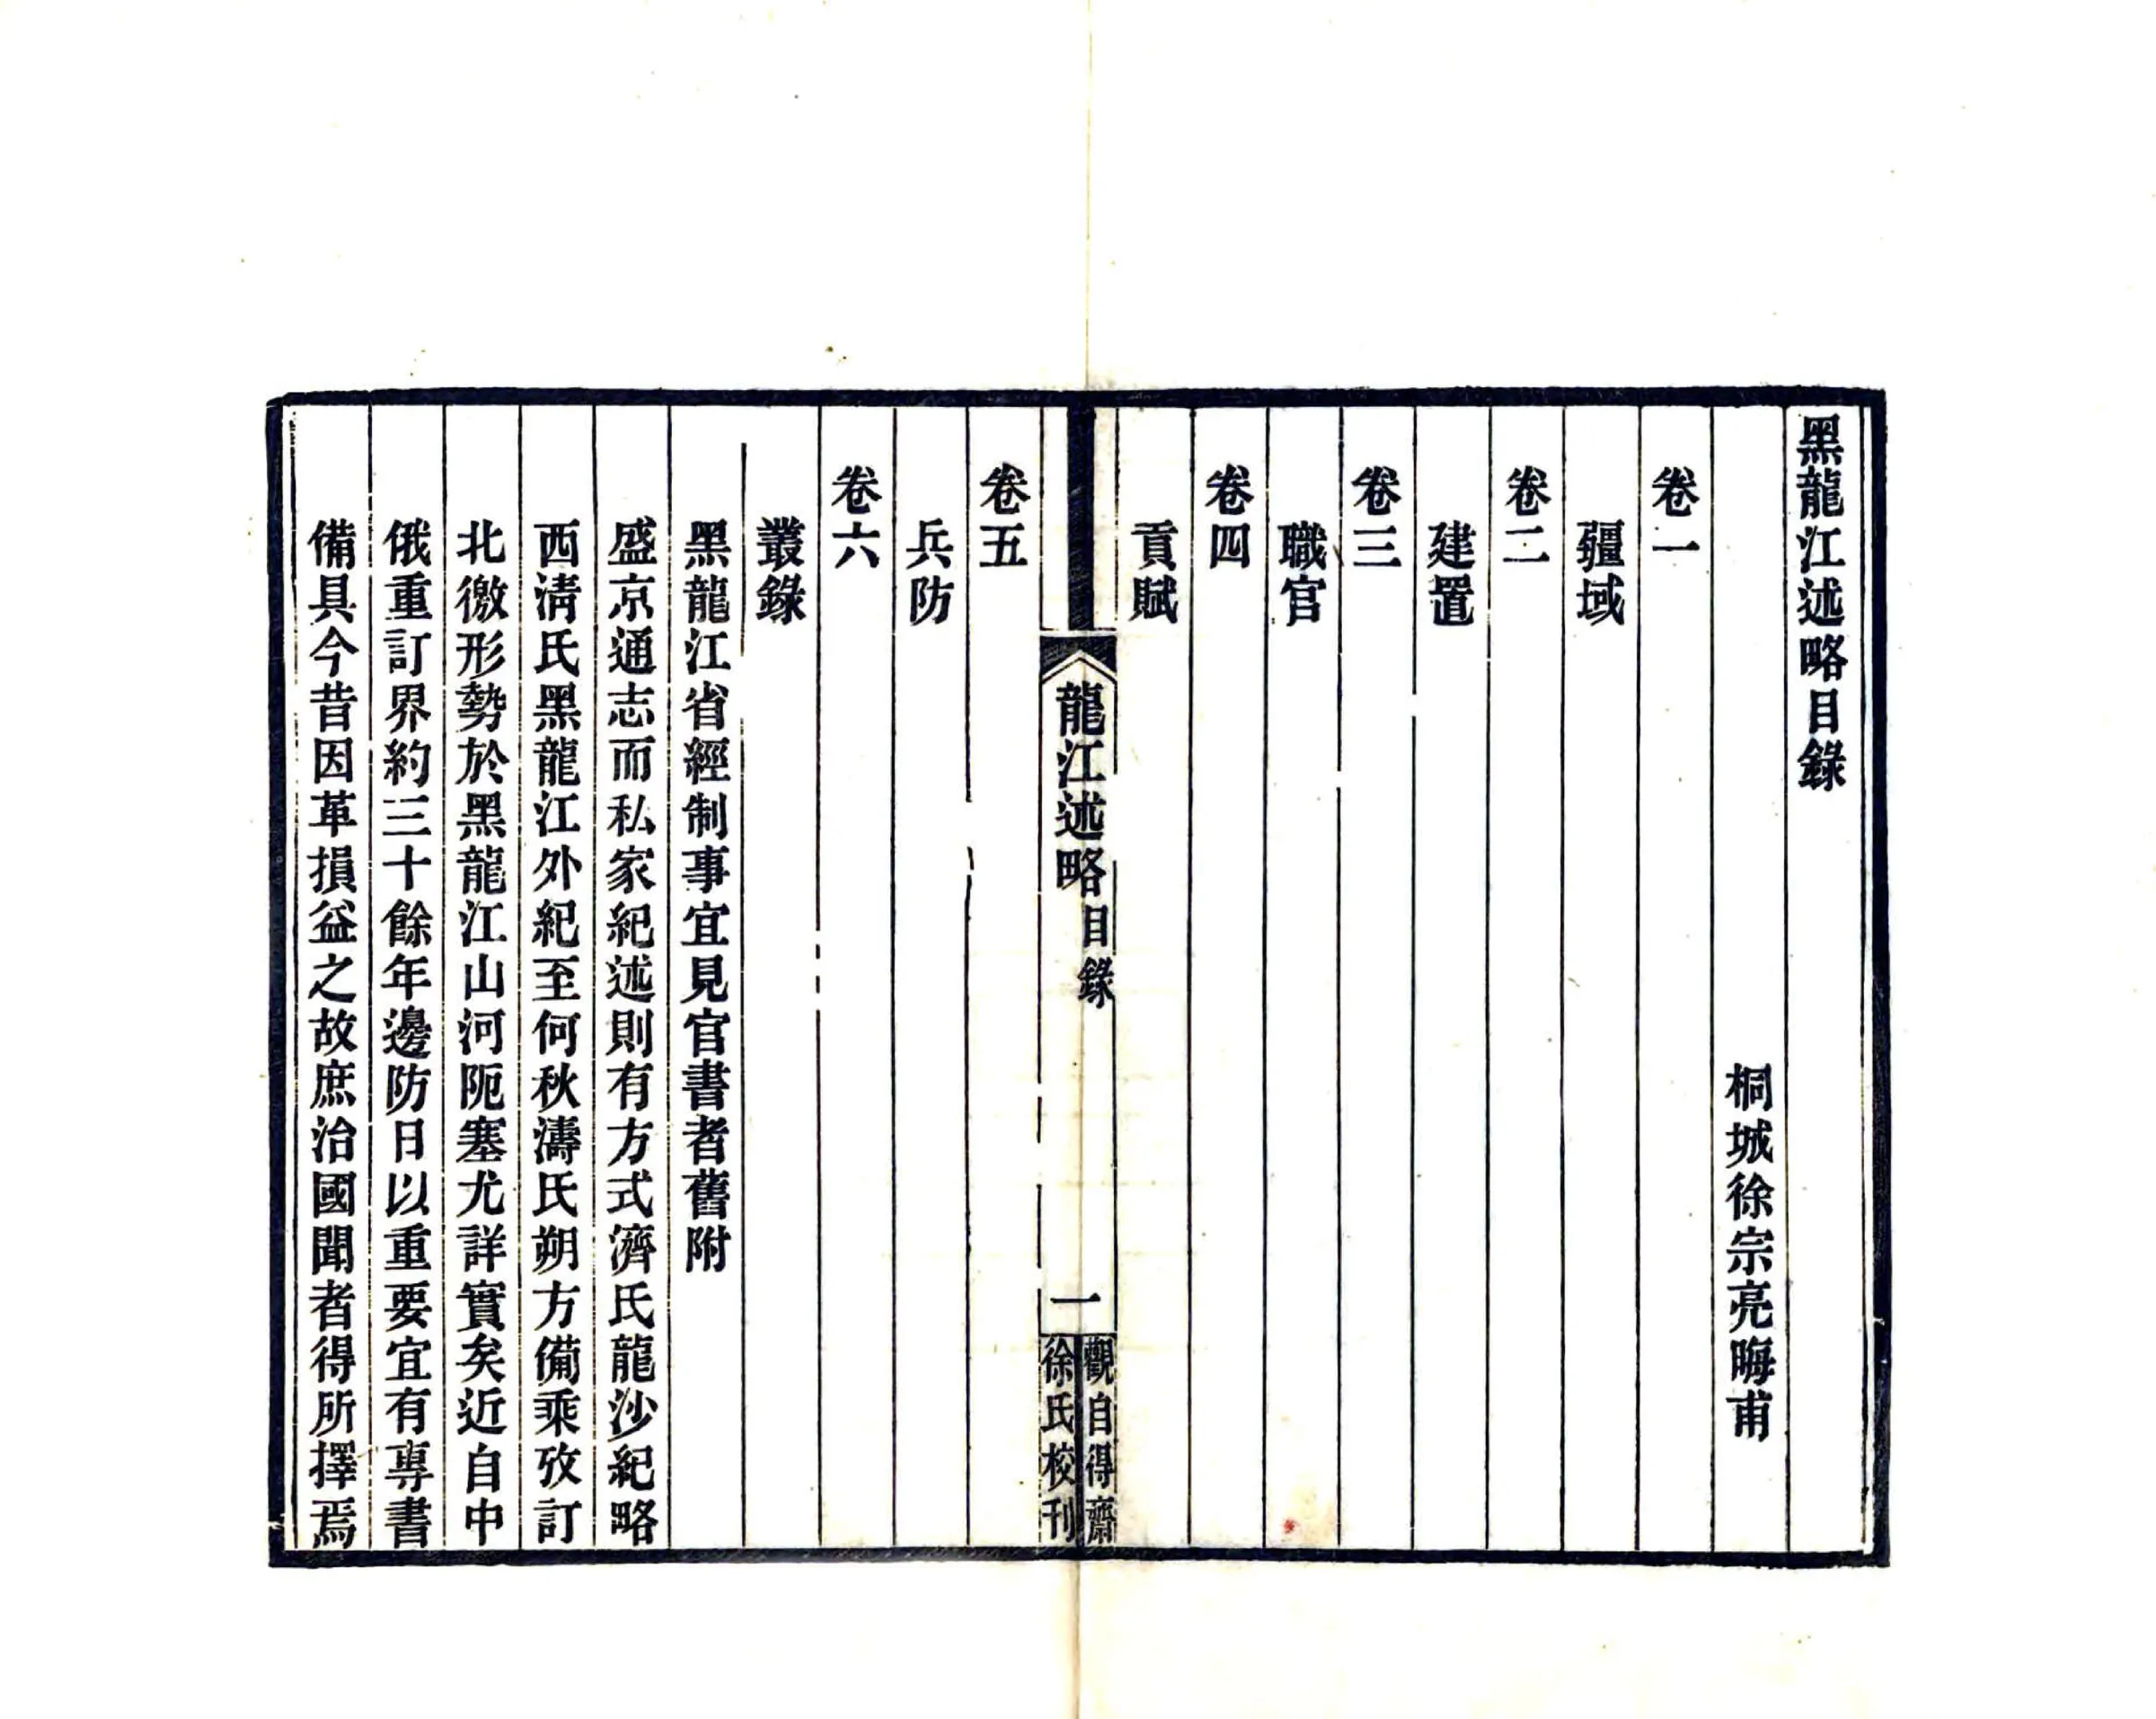 黑龍江述略目錄
桐城徐宗亮晦甫
卷一
疆域
卷二
建置
卷三
職官
卷四
貢賦
龍江述略目錄
一
觀自得齋
徐氏校刊
卷五
兵防
卷六
叢錄
黑龍江省經制事宜見官書者舊附
盛京通志而私家紀述則有方式濟氏龍沙紀略
西淸氏黑龍江外紀至何秋濤氏朔方備乘攷訂
北徼形勢於黑龍江山河阨塞尤詳實矣近自中
俄重訂界約三十餘年邊防日以重要宜有專書
備具今昔因革損益之故庶治國聞者得所擇焉